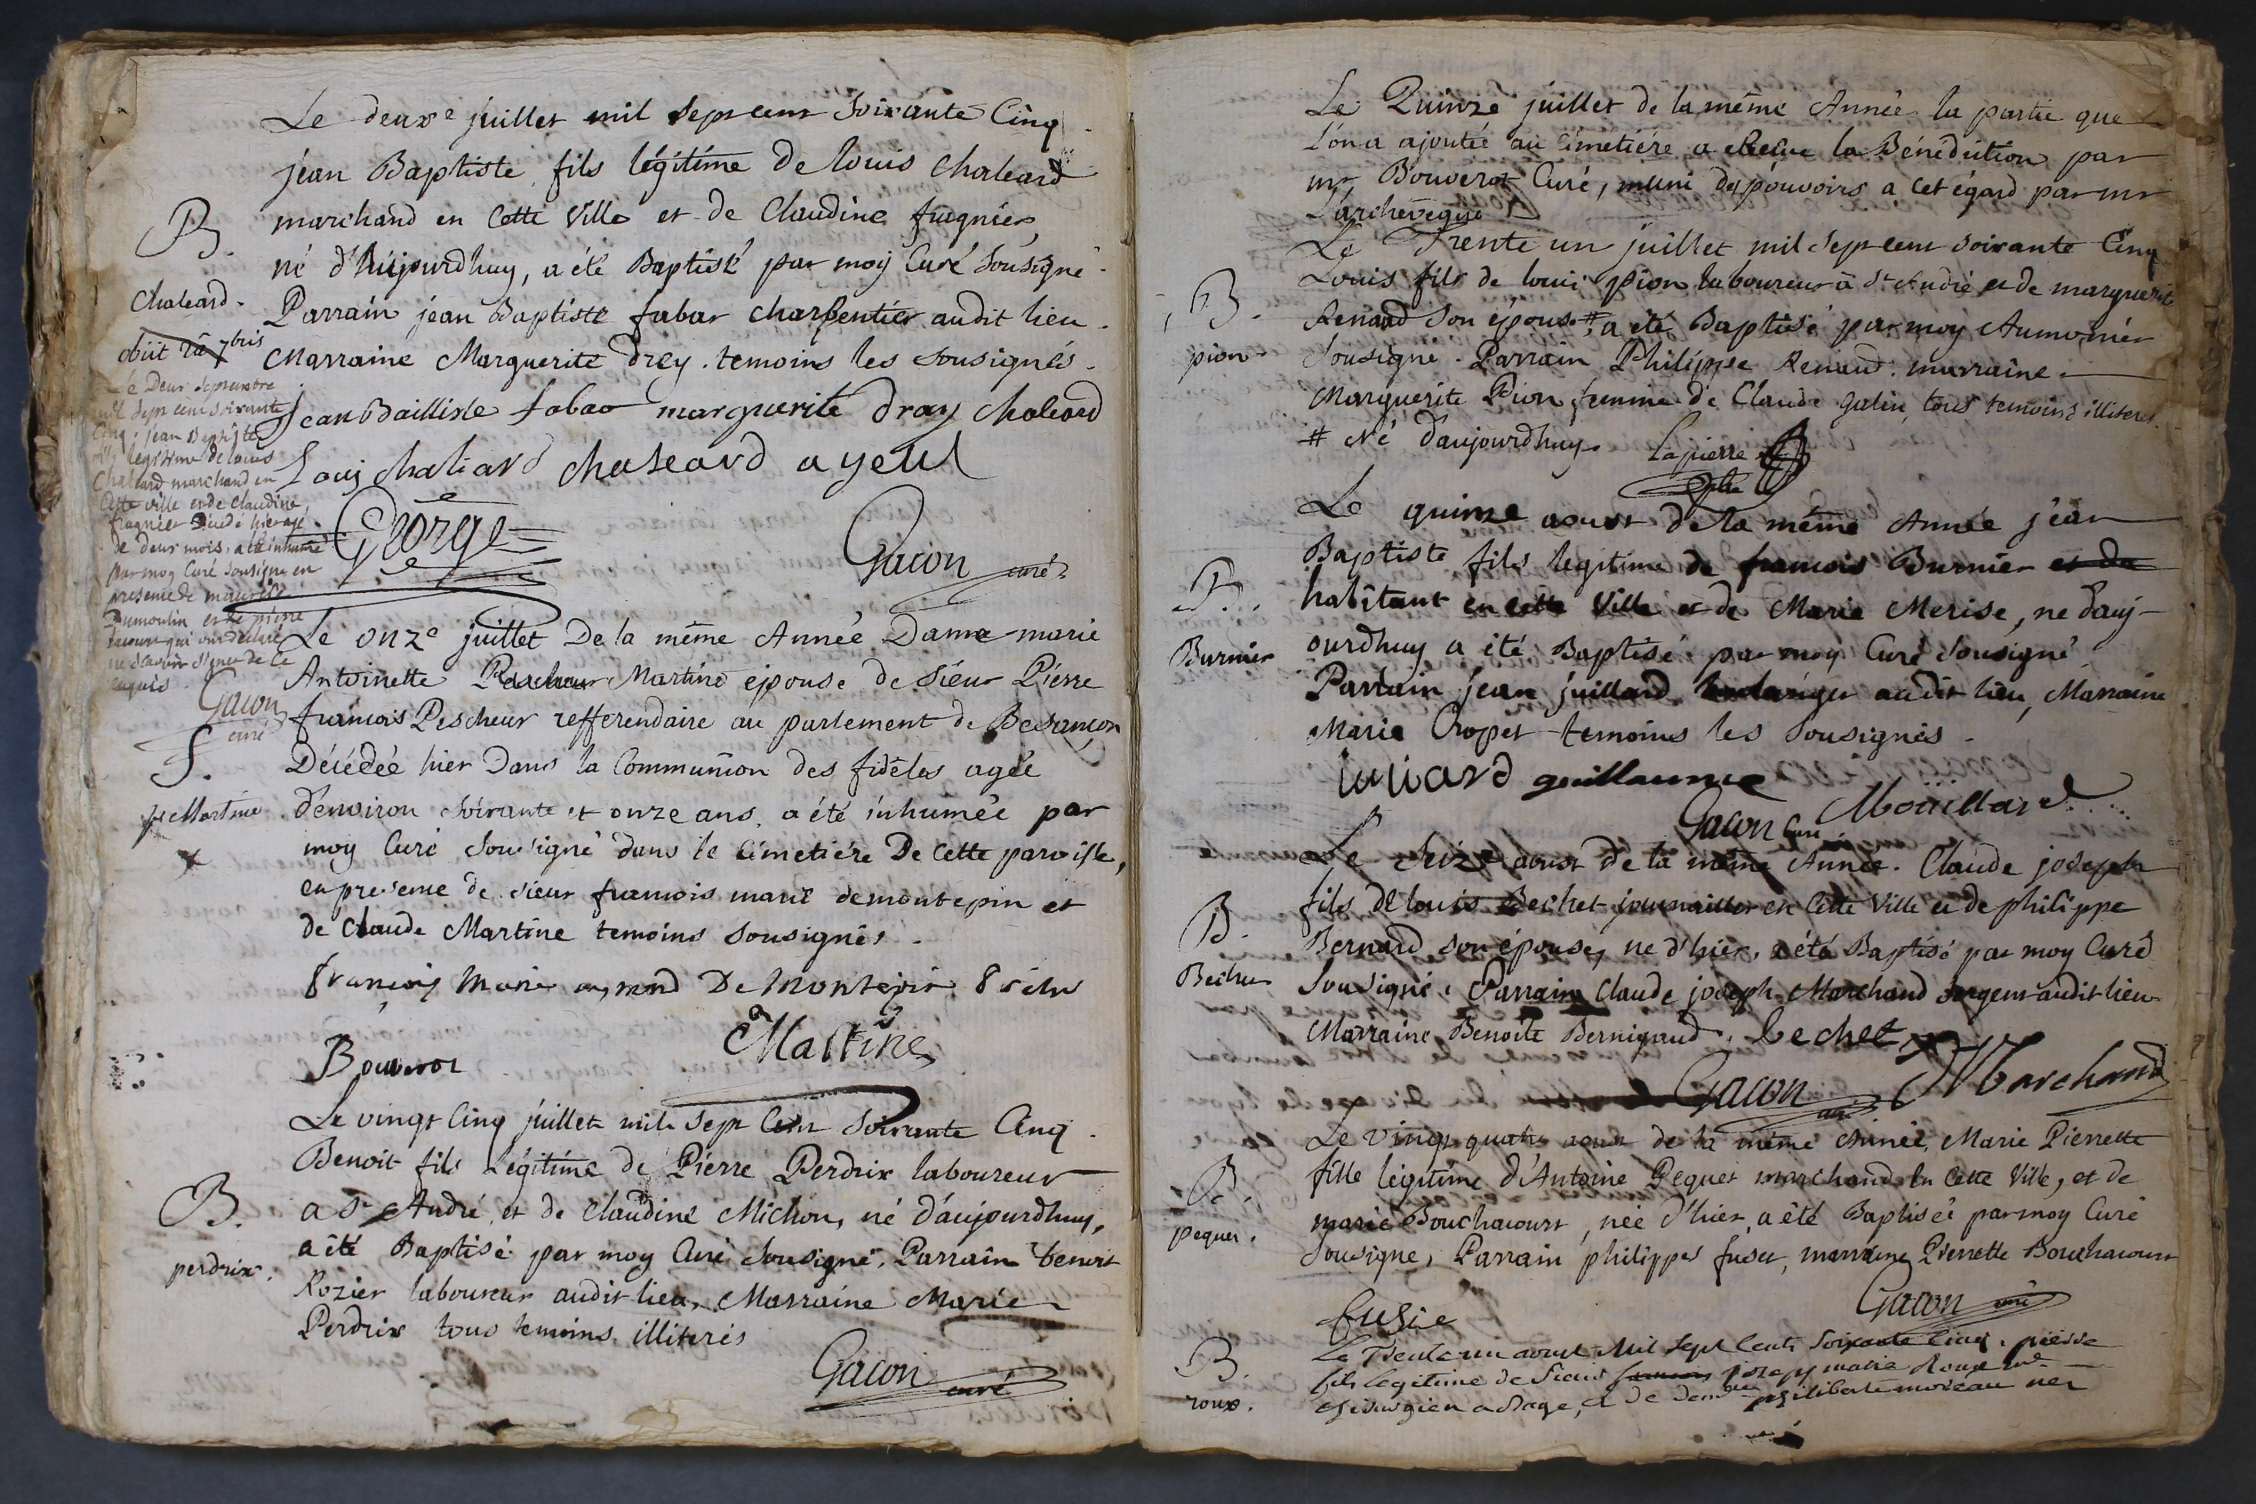 Le deuxe juillet mil sept cent soixante Cinq
jean Baptiste, fils légitime de louis chaleard
marchand en cette Ville et de Claudine fragnier,
né d'hujourdhuy, a été Baptisé par moy Curé Sousigné.
Parrain jean Baptiste fabar charpentier audit lieu.
Marraine Marguerite Drey. temoins les sousignés.
Jean Bailliste fabar marguerite dray Chaleard
Louis chaliard chaleard ayeul
George
Gacon curé
B.
Chaleard.
obiit 2a 7bris
Le Deux Septembre
mil Sept cent soixante
Cinq, jean Baptiste
fils legitime de louis
Chaleard marchand en
Cette ville et de Claudine
fragnier décédé hier agé
de deux mois, a été inhumé
par moy Curé sousigné en
presence de
Dumoulin et de pierre
qui ont déclaré
ne scavoir signer de ce
enquis
Gacon
curé
Le onze juillet De la même Année Dame marie
Antoinette Martine epouse de sieur Pierre
francois Pescheur refferendaire au parlement de Besançon
Décédée hier Dans la Communion des fidèles agée
d'environ soixante et onze ans, a été inhumée par
moy Curé sousigné dans le Cimetiére De Cette paroisse,
en presence de sieur francois marie demontepin et
de Claude Martine temoins sousignés.
S.
Martine
françois Marie aymond De Montepin
Martine
Bouverot
Le vingt Cinq juillet mil sept Cent Soixante Cinq.
Benoit fils Légitime de Pierre Perdrix laboureur
a St André, et de Claudine Michon, né d'aujourdhuy,
a été Baptisé par moy Curé Sousigné, Parrain benoit
Rozier laboureur audit lieu, Marraine Marie
Perdrix tous temoins illiterés
B.
perdrix.
Gacon curé
Le Quinze juillet de la même Année la partie que
l'on a ajoutée au Cimetiére, a la Bénédiction par
mr Bouverot Curé, muni des pouvoirs a cet égard par mr
L'archevêque
Le Trente un juillet mil sept cent soixante Cinq
Louis fils de louis pion laboureur à St André et de marguerite
Renaud son épouse # a été Baptisé par moy Aumonier
Sousigné. Parrain Philippe Renaud. marraine
Marguerite Pion femme de Claude Galin, tous temoins illiteres.
# Né d'aujourdhuy. Lapierre
ptre
B.
pion
Le quinze aoust de la même Année jean
Baptiste fils legitime de francois Burnier et de
habitant en cette Ville et de Marie Merise, ne d'auj-
ourdhuy a été Baptisé par moy Curé Sousigné
Parrain jean juillard boulanger audit lieu, Marraine
Marie Cropet temoins les Sousignés.
B.
Burnier
juillard guillaume
Gacon Curé Moüillard
Le Seize aoust de la même Année. Claude joseph
fils de louis Bechet journaillier en Cette Ville et de philippe
Bernard son épouse, ne d'hier, a été Baptisé par moy Curé
Sousigné, Parrain Claude joseph Marchand sergent audit lieu
Marraine Benoite Bernigaud. bechet
B.
Bechet
Gacon curé Marchand
Le Vingt quatre aoust de la même Année, Marie Pierrette
fille légitime d'Antoine Pequet marchand en Cette Ville, et de
marie Bouchacourt, née d'hier, a été Baptisée par moy Curé
Sousigné, Parrain philippes fusier, marraine Pierrette Bouchacourt
B.
pequet.
fusie
Gacon curé
Le Trente un aoust Mil Sept Cents Soixante Cinq. pierre
fils legitime de Sieur francois joseph marie Roux md
chirurgien a Bage, et de demlle philiberte moreau née
B.
roux.